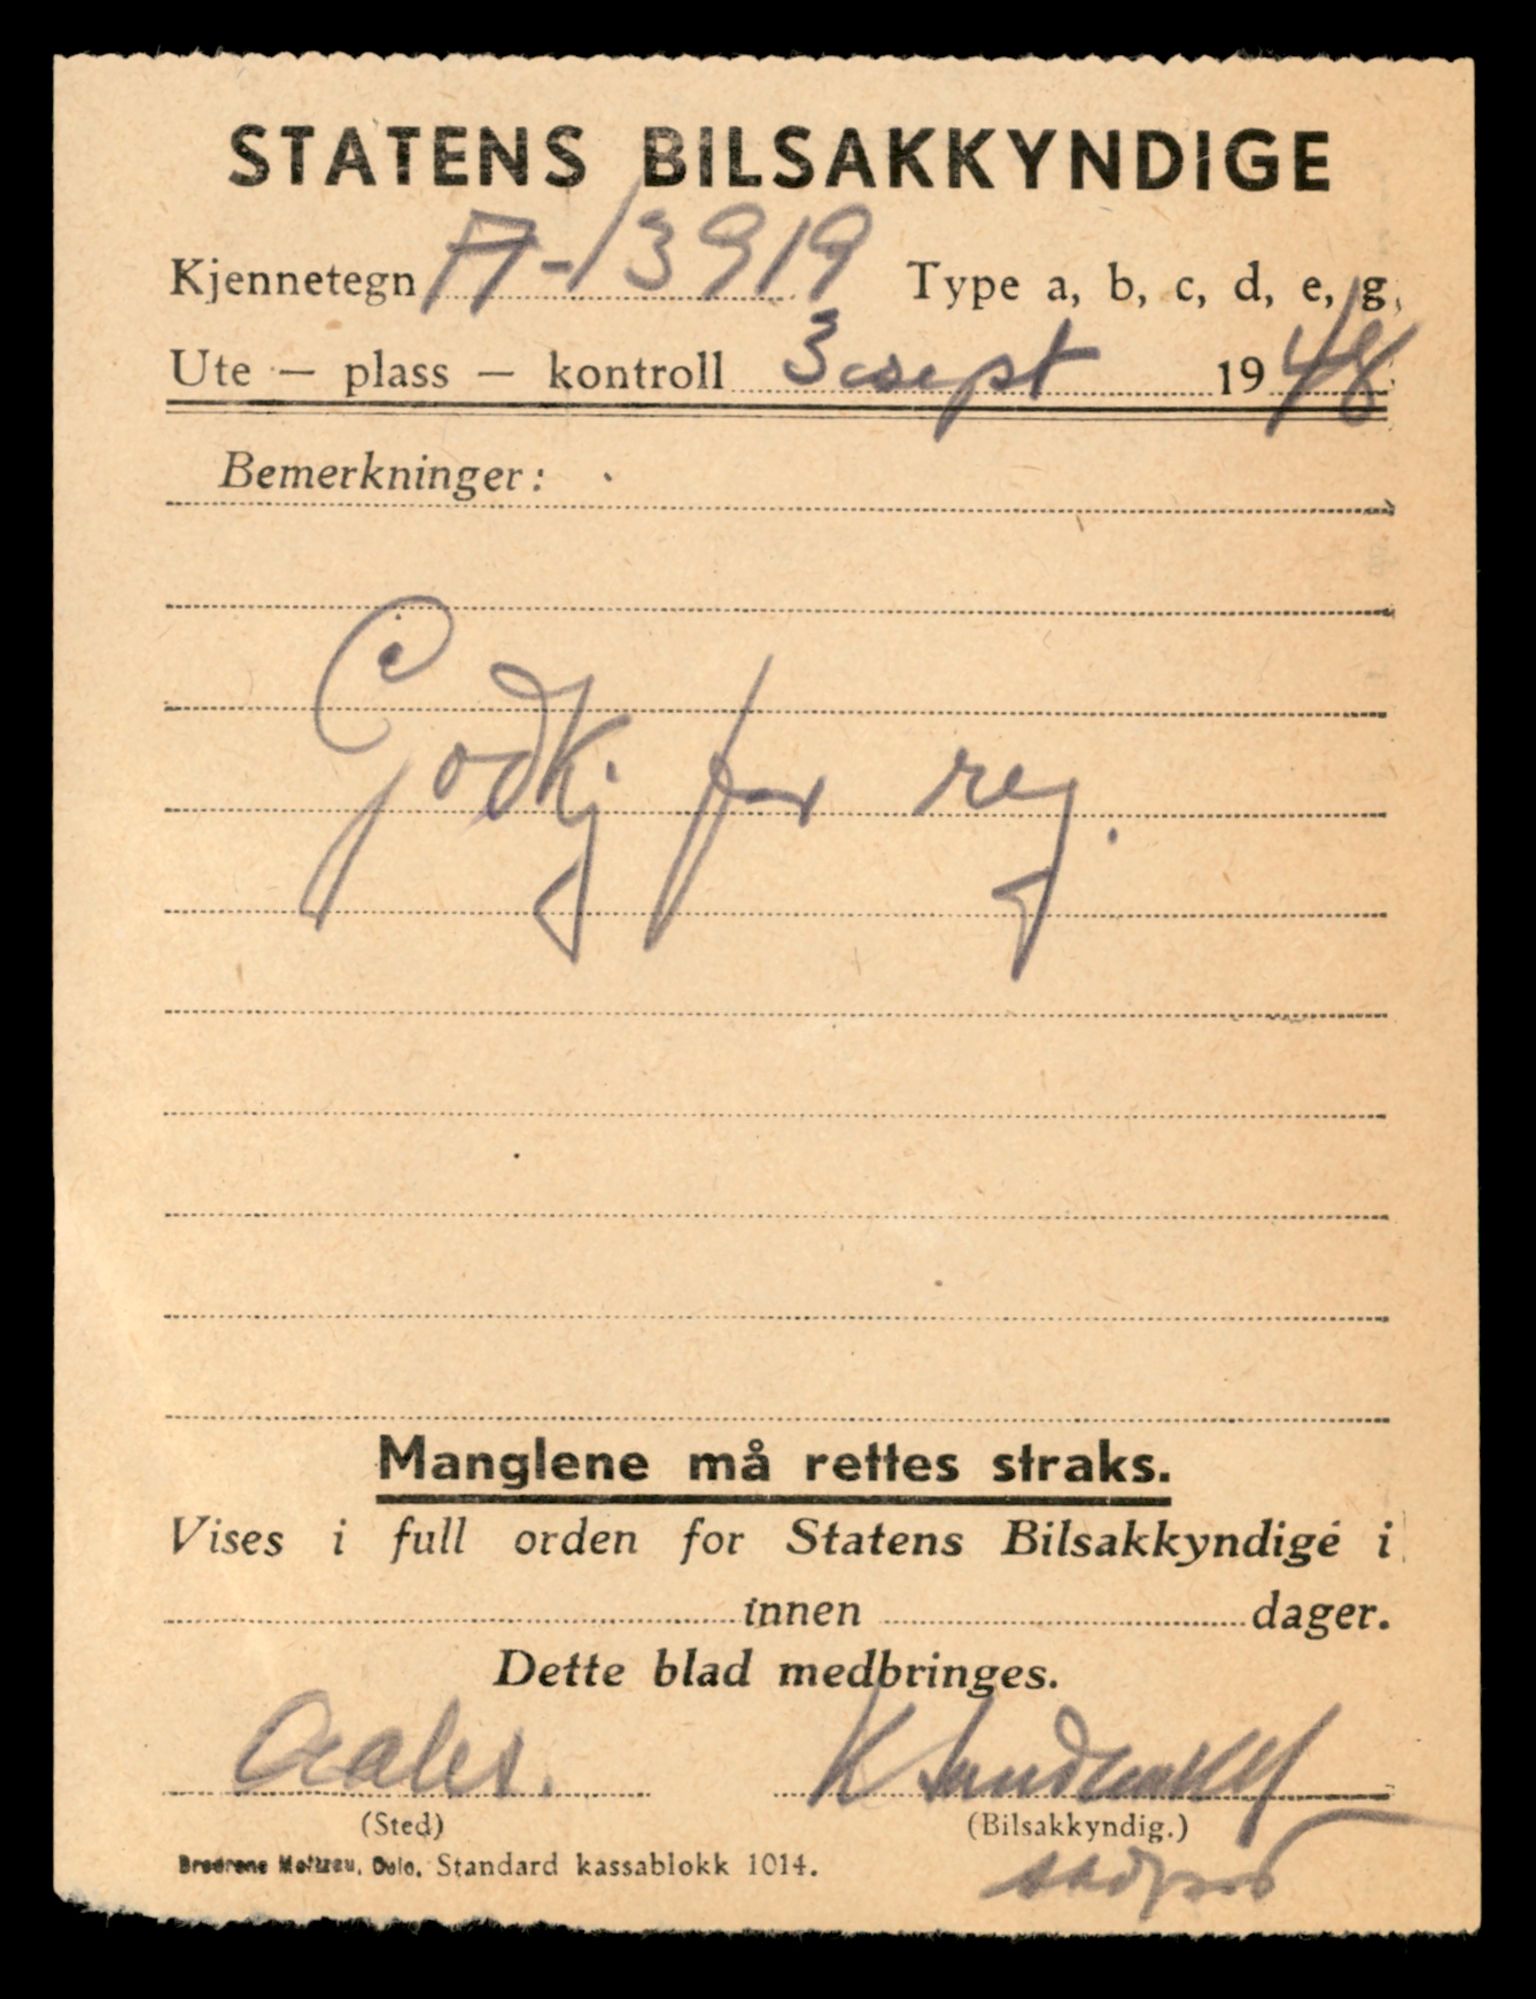 STATENS BILSAKKYNDIGE
Kjennetegn A-13919 Type a, b, c, d, e, g,
Ute — plass — kontroll 3 sept 1948
Bemerkninger:
Godkj for reg.
Manglene må rettes straks.
Vises i full orden for Statens Bilsakkyndige i
innen dager.
Dette blad medbringes.
Aales. K
(Sted) (Bilsakkyndig.)
Brødrene Meltzau, Oslo. Standard kassablokk 1014.